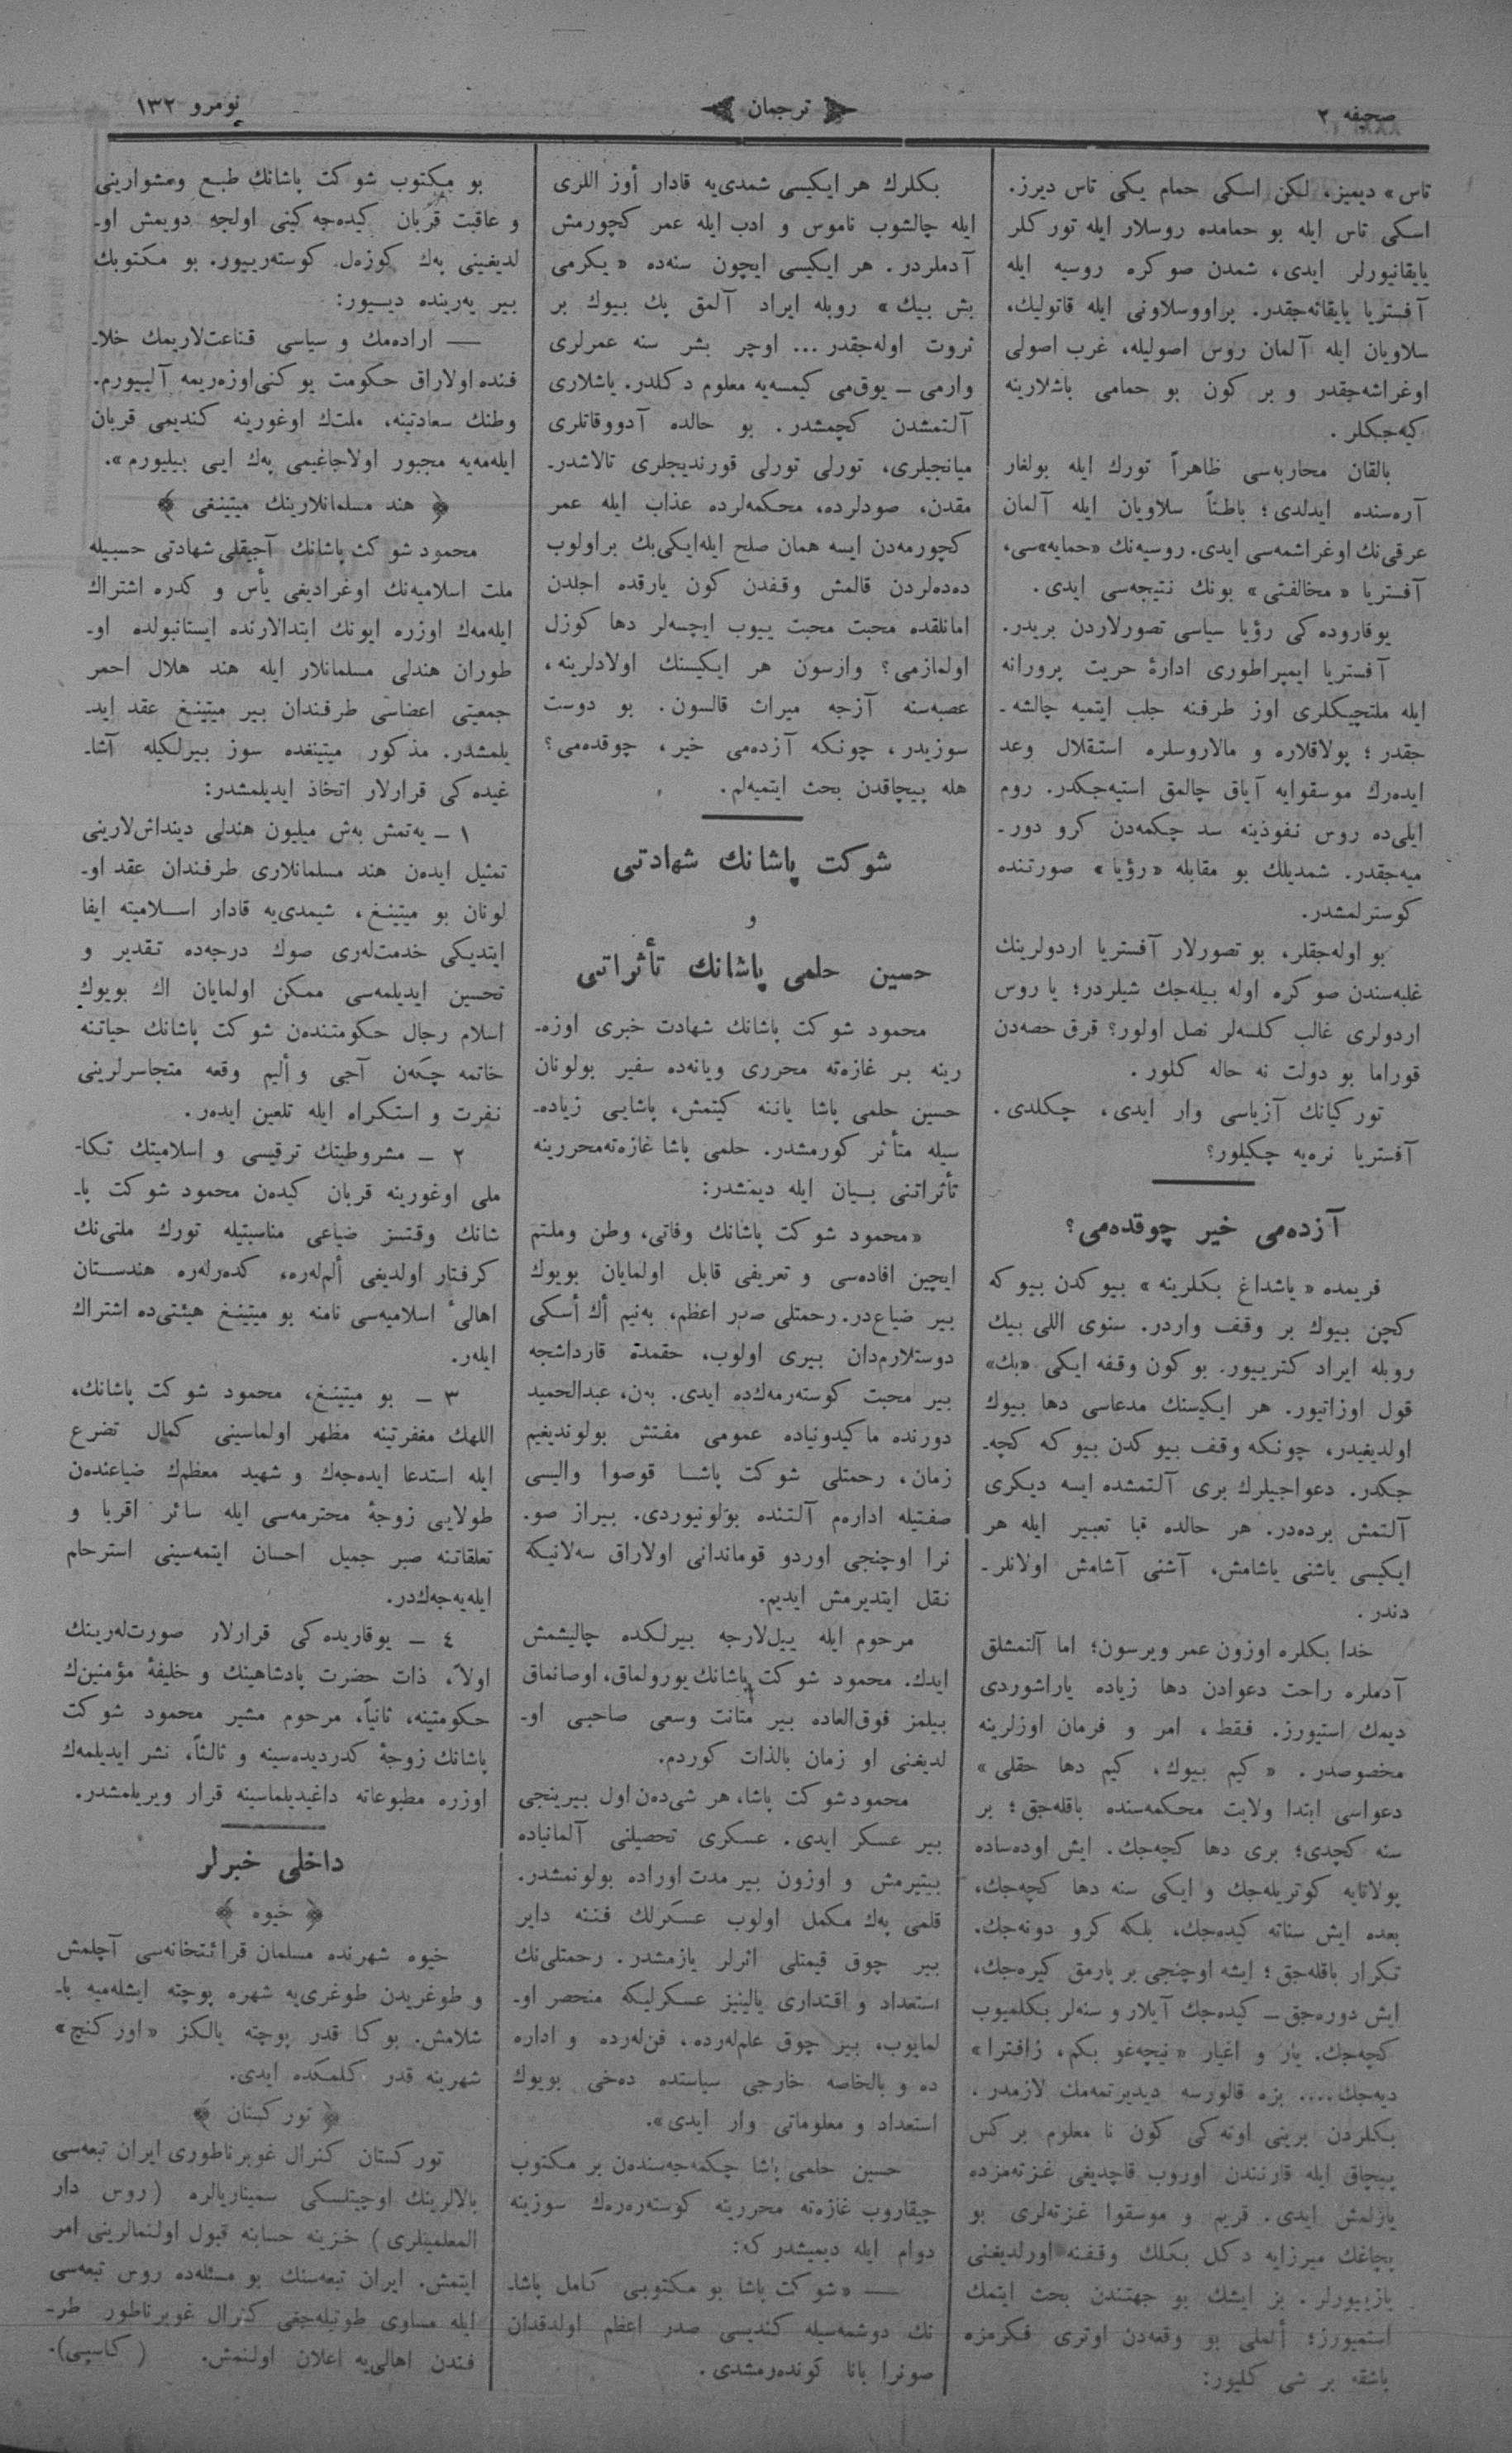 صحیفه ٢
ترجمان
نومرو ١٣٢
تاس» دیمیز، لکن اسکی حمام یکی تاس دیرز.
اسکی تاس ایله بو حمامده روسلار ایله تورکلر
یایقانیورلر ایدی، شمدن صوکره روسیه ایله
آفستریا یایقانه‌جقدر. پراووسلاونی ایله قاتولیك،
سلاویان ایله آلمان روس اصولیله، غرب اصولی
اوغراشه‌جقدر و بر کون بو حمامی باشلارینه
کیه‌جکلر.
بالقان محاربه‌سی ظاهراً تورك ایله بولغار
آره‌سنده ایدلدی؛ باطناً سلاویان ایله آلمان
عرقی‌نك اوغراشمه‌سی ایدی. روسیه‌نك «حمایه»سی،
آفستریا «مخالفتی» بونك نتیجه‌سی ایدی.
یوقاروده‌کی رؤیا سیاسی تصورلاردن بریدر.
آفستریا ایمپراطوری ادارهٔ حریت پرورانه
ایله ملتچیکلری اوز طرفنه جلب ایتمیه چالشه‌ـ
جقدر؛ پولاقلاره و مالاروسلره استقلال وعد
ایده‌رك موسقوایه آیاق چالمق استیه‌جکدر. روم
ایلی‌ده روس نفوذینه سد چکمه‌دن کرو دورـ
میه‌جقدر. شمدیلك بو مقابله «رؤیا» صورتنده
کوسترلمشدر.
بو اوله‌جقلر، بو تصورلار آفستریا اردولرینك
غلبه‌سندن صوکره اوله بیله‌جك شیلردر؛ یا روس
اردولری غالب کلسه‌لر نصل اولور؟ قرق حصه‌دن
قوراما بو دولت نه حاله کلور.
تورکیانك آزیاسی وار ایدی، چکلدی.
آفستریا نره‌یه چکیلور؟
آزده‌می خیر چوقده‌می؟
قریمده «یاشداغ بکلرینه» بیوکدن بیوکه
کچن بیوك بر وقف واردر. سنوی اللی بیك
روبله ایراد کتریبور. بو کون وقفه ایکی «بك»
قول اوزاتیور. هر ایکیسنك مدعاسی دها بیوك
اولدیغیدر، چونکه وقف بیوکدن بیوکه کچه‌ـ
جکدر. دعواجیلرك بری آلتمشده ایسه دیکری
آلتمش برده‌در. هر حالده قبا تعبیر ایله هر
ایکیسی یاشنی یاشامش، آشنی آشامش اولانلرـ
دندر.
خدا بکلره اوزون عمر ویرسون؛ اما آلتمشلق
آدملره راحت دعوادن دها زیاده یاراشوردی
دیمك استیورز. فقط، امر و فرمان اوزلرینه
مخصوصدر. «کیم بیوك، کیم دها حقلی»
دعواسی ابتدا ولایت محکمه‌سنده باقله‌جق؛ بر
سنه کچدی؛ بری دها کچه‌جك. ایش اوده‌ساده
پولاتایه کوتریله‌جك و ایکی سنه دها کچه‌جك،
بعده ایش سناته کیده‌جك، بلکه کرو دونه‌جك.
تکرار باقله‌جق؛ ایشه اوچنجی بر پارمق کیره‌جك،
ایش دوره‌جق ــ کیده‌جك آیلار و سنه‌لر بکلمیوب
کچه‌جك. یار و اغیار «نیچه‌غو بکم، زافترا»
دیه‌جك.... بزه قالورسه دیدیرتمه‌مك لازمدر.
بکلردن برینی اوته‌کی کون نا معلوم برکس
پیچاق ایله قارنندن اوروب قاچدیغی غزته‌مزده
یازلمش ایدی. قریم و موسقوا غزته‌لری بو
پچاغك میرزایه دکل بکلك وقفنه اورلدیغنی
یازییورلر. بز ایشك بو جهتندن بحث ایتمك
استمیورز؛ ألملی بو وقعه‌دن اوتری فکرمزه
باشقه بر شی کلیور:
بکلرك هر ایکیسی شمدی‌یه قادار أوز اللری
ایله چالشوب ناموس و ادب ایله عمر کچورمش
آدملردر. هر ایکیسی ایچون سنه‌ده «یکرمی
بش بیك» روبله ایراد آلمق پك بیوك بر
ثروت اوله‌جقدر... اوچر بشر سنه عمرلری
وارمی ــ یوق‌می کیمسه‌یه معلوم دکلدر. یاشلاری
آلتمشدن کچمشدر. بو حالده آدووقاتلری
میانجیلری، تورلی تورلی قورندیجلری تالاشدرـ
مقدن، صودلرده، محکمه‌لرده عذاب ایله عمر
کچورمه‌دن ایسه همان صلح ایله‌ایکی‌بك براولوب
ده‌ده‌لردن قالمش وقفدن کون یارقده اجلدن
امانلقده محبت محبت ییوب ایچسه‌لر دها کوزل
اولمازمی؟ وارسون هر ایکیسنك اولادلرینه،
عصبه‌سنه آزجه میراث قالسون. بو دوست
سوزیدر، چونکه آزده‌می خیر، چوقده‌می؟
هله پیچاقدن بحث ایتمیه‌لم.
شوکت پاشانك شهادتی
و
حسین حلمی پاشانك تأثراتی
محمود شوکت پاشانك شهادت خبری اوزه‌ـ
رینه بر غازه‌ته محرری ویانه‌ده سفیر بولونان
حسین حلمی پاشا یاننه کیتمش، پاشایی زیاده‌ـ
سیله متأثر کورمشدر. حلمی پاشا غازه‌ته‌محررینه
تأثراتنی بیان ایله دیمشدر:
«محمود شوکت پاشانك وفاتی، وطن وملتم
ایچین افاده‌سی و تعریفی قابل اولمایان بویوك
بیر ضیاع‌در. رحمتلی صدر اعظم، به‌نیم أك أسکی
دوستلارم‌دان بیری اولوب، حقمدة قارداشجه
بیر محبت کوسته‌رمه‌ك‌ده ایدی. به‌ن، عبدالحمید
دورنده ماکیدونیاده عمومی مفتش بولوندیغیم
زمان، رحمتلی شوکت پاشا قوصوا والیسی
صفتیله اداره‌م آلتنده بولونیوردی. بیراز صو.
نرا اوچنجی اوردو قوماندانی اولاراق سه‌لانیکه
نقل ایتدیرمش ایدیم.
مرحوم ایله ییل‌لارجه بیرلکده چالیشمش
ایدك. محمود شوکت پاشانك یورولماق، اوصانماق
بیلمز فوق‌العاده بیر متانت وسعی صاحبی اوـ
لدیغنی او زمان بالذات کوردم.
محمود شوکت پاشا، هر شی‌ده‌ن اول بیرینجی
بیر عسکر ایدی. عسکری تحصیلنی آلمانیاده
بیتیرمش و اوزون بیر مدت اوراده بولونمشدر.
قلمی په‌ك مکمل اولوب عسکرلك فننه دایر
بیر چوق قیمتلی اثرلر یازمشدر. رحمتلی‌نك
استعداد و اقتداری یالینیز عسکرلیکه منحصر اوـ
لمایوب، بیر چوق علم‌له‌رده، فن‌له‌رده و اداره
ده و بالخاصه خارجی سیاستده ده‌خی بویوك
استعداد و معلوماتی وار ایدی».
حسین حلمی پاشا چکمه‌جه‌سنده‌ن بر مکتوب
چیقاروب غازه‌ته محررینه کوسته‌ره‌ره‌ك سوزینه
دوام ایله دیمیشدر که:
ــ «شوکت پاشا بو مکتوبی کامل پاشاـ
نك دوشمه‌سیله کندیسی صدر اعظم اولدقدان
صونرا بانا کونده‌رمشدی.
بو مکتوب شوکت پاشانك طبع ومشوارینی
و عاقبت قربان کیده‌جه‌کینی اولجه دویمش اوـ
لدیغینی په‌ك کوزه‌ل کوسته‌رییور. بو مکتوبك
بیر یه‌رینده دییور:
ــ اراده‌مك و سیاسی قناعت‌لاریمك خلاـ
فنده اولاراق حکومت یوکنی‌اوزه‌ریمه آلییورم.
وطنك سعادتینه، ملت‌ك اوغورینه کندیمی قربان
ایله‌مه‌یه مجبور اولاجاغیمی په‌ك ایی بیلیورم».
﴿ هند مسلمانلارینك میتینغی ﴾
محمود شوکت پاشانك آجیقلی شهادتی حسبیله
ملت اسلامیه‌نك اوغرادیغی یأس و کدره اشتراك
ایله‌مه‌ك اوزره ایونك ابتدالارنده ایستانبولده اوـ
طوران هندلی مسلمانلار ایله هند هلال احمر
جمعیتی اعضاسی طرفندان بیر میتینغ عقد ایدـ
یلمشدر. مذکور میتینغده سوز بیرلکیله آشاـ
غیده‌کی قرارلار اتخاذ ایدیلمشدر:
١ ــ یه‌تمش به‌ش میلیون هندلی دینداش‌لارینی
تمثیل ایده‌ن هند مسلمانلاری طرفندان عقد اوـ
لونان بو میتینغ، شیمدی‌یه قادار اسلامیته ایفا
ایتدیکی خدمت‌له‌ری صوك درجه‌ده تقدیر و
تحسین ایدیلمه‌سی ممکن اولمایان اك بویوك
اسلام رجال حکومتنده‌ن شوکت پاشانك حیاتنه
خاتمه چکه‌ن آجی وألیم وقعه متجاسرلرینی
نفرت و استکراه ایله تلعین ایده‌ر.
٢ ــ مشروطیتك ترقیسی و اسلامیتك تکاـ
ملی اوغورینه قربان کیده‌ن محمود شوکت پاـ
شانك وقتسز ضیاعی مناسبتیله تورك ملتی‌نك
کرفتار اولدیغی ألم‌له‌ره، کده‌رله‌ره هندستان
اهالیٔ اسلامیه‌سی نامنه بو میتینغ هیئتی‌ده اشتراك
ایله‌ر.
٣ ــ بو میتینغ، محمود شوکت پاشانك،
اللهك مغفرتینه مظهر اولماسینی کمال تضرع
ایله استدعا ایده‌جه‌ك و شهید معظم‌ك ضیاعنده‌ن
طولایی زوجهٔ محترمه‌سی ایله سائر اقربا و
تعلقاتنه صبر جمیل احسان ایتمه‌سینی استرحام
ایله‌یه‌جه‌ك‌در.
٤ ــ یوقاریده‌کی قرارلار صورت‌له‌رینك
اولاً، ذات حضرت پادشاهینك و خلیفهٔ مؤمنین‌ك
حکومتینه، ثانیاً، مرحوم مشیر محمود شوکت
پاشانك زوجهٔ کدردیده‌سینه و ثالثاً، نشر ایدیلمه‌ك
اوزره مطبوعاته داغیدیلماسینه قرار ویریلمشدر.
داخلی خبرلر
﴿ خیوه ﴾
خیوه شهرنده مسلمان قرائتخانه‌سی آچلمش
و طوغریدن طوغری‌یه شهره پوچته ایشله‌میه باـ
شلامش. بوکا قدر پوچته یالکز «اورکنج»
شهرینه قدر کلمکده ایدی.
﴿ تورکستان ﴾
تورکستان کنرال غوبرناطوری ایران تبعه‌سی
بالالرینك اوچیتلسکی سمیناریالره (روس دار
المعلمینلری) خزینه حسابنه قبول اولنمالرینی امر
ایتمش. ایران تبعه‌سنك بو مسئله‌ده روس تبعه‌سی
ایله مساوی طوتیله‌جغی کنرال غوبرناطور طرـ
فندن اهالی‌یه اعلان اولنمش. (کاسپی).